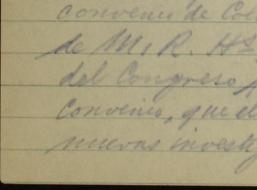 convenio de Col
de M. R. H
del Congreso
Convenio, que el
nuevas investig